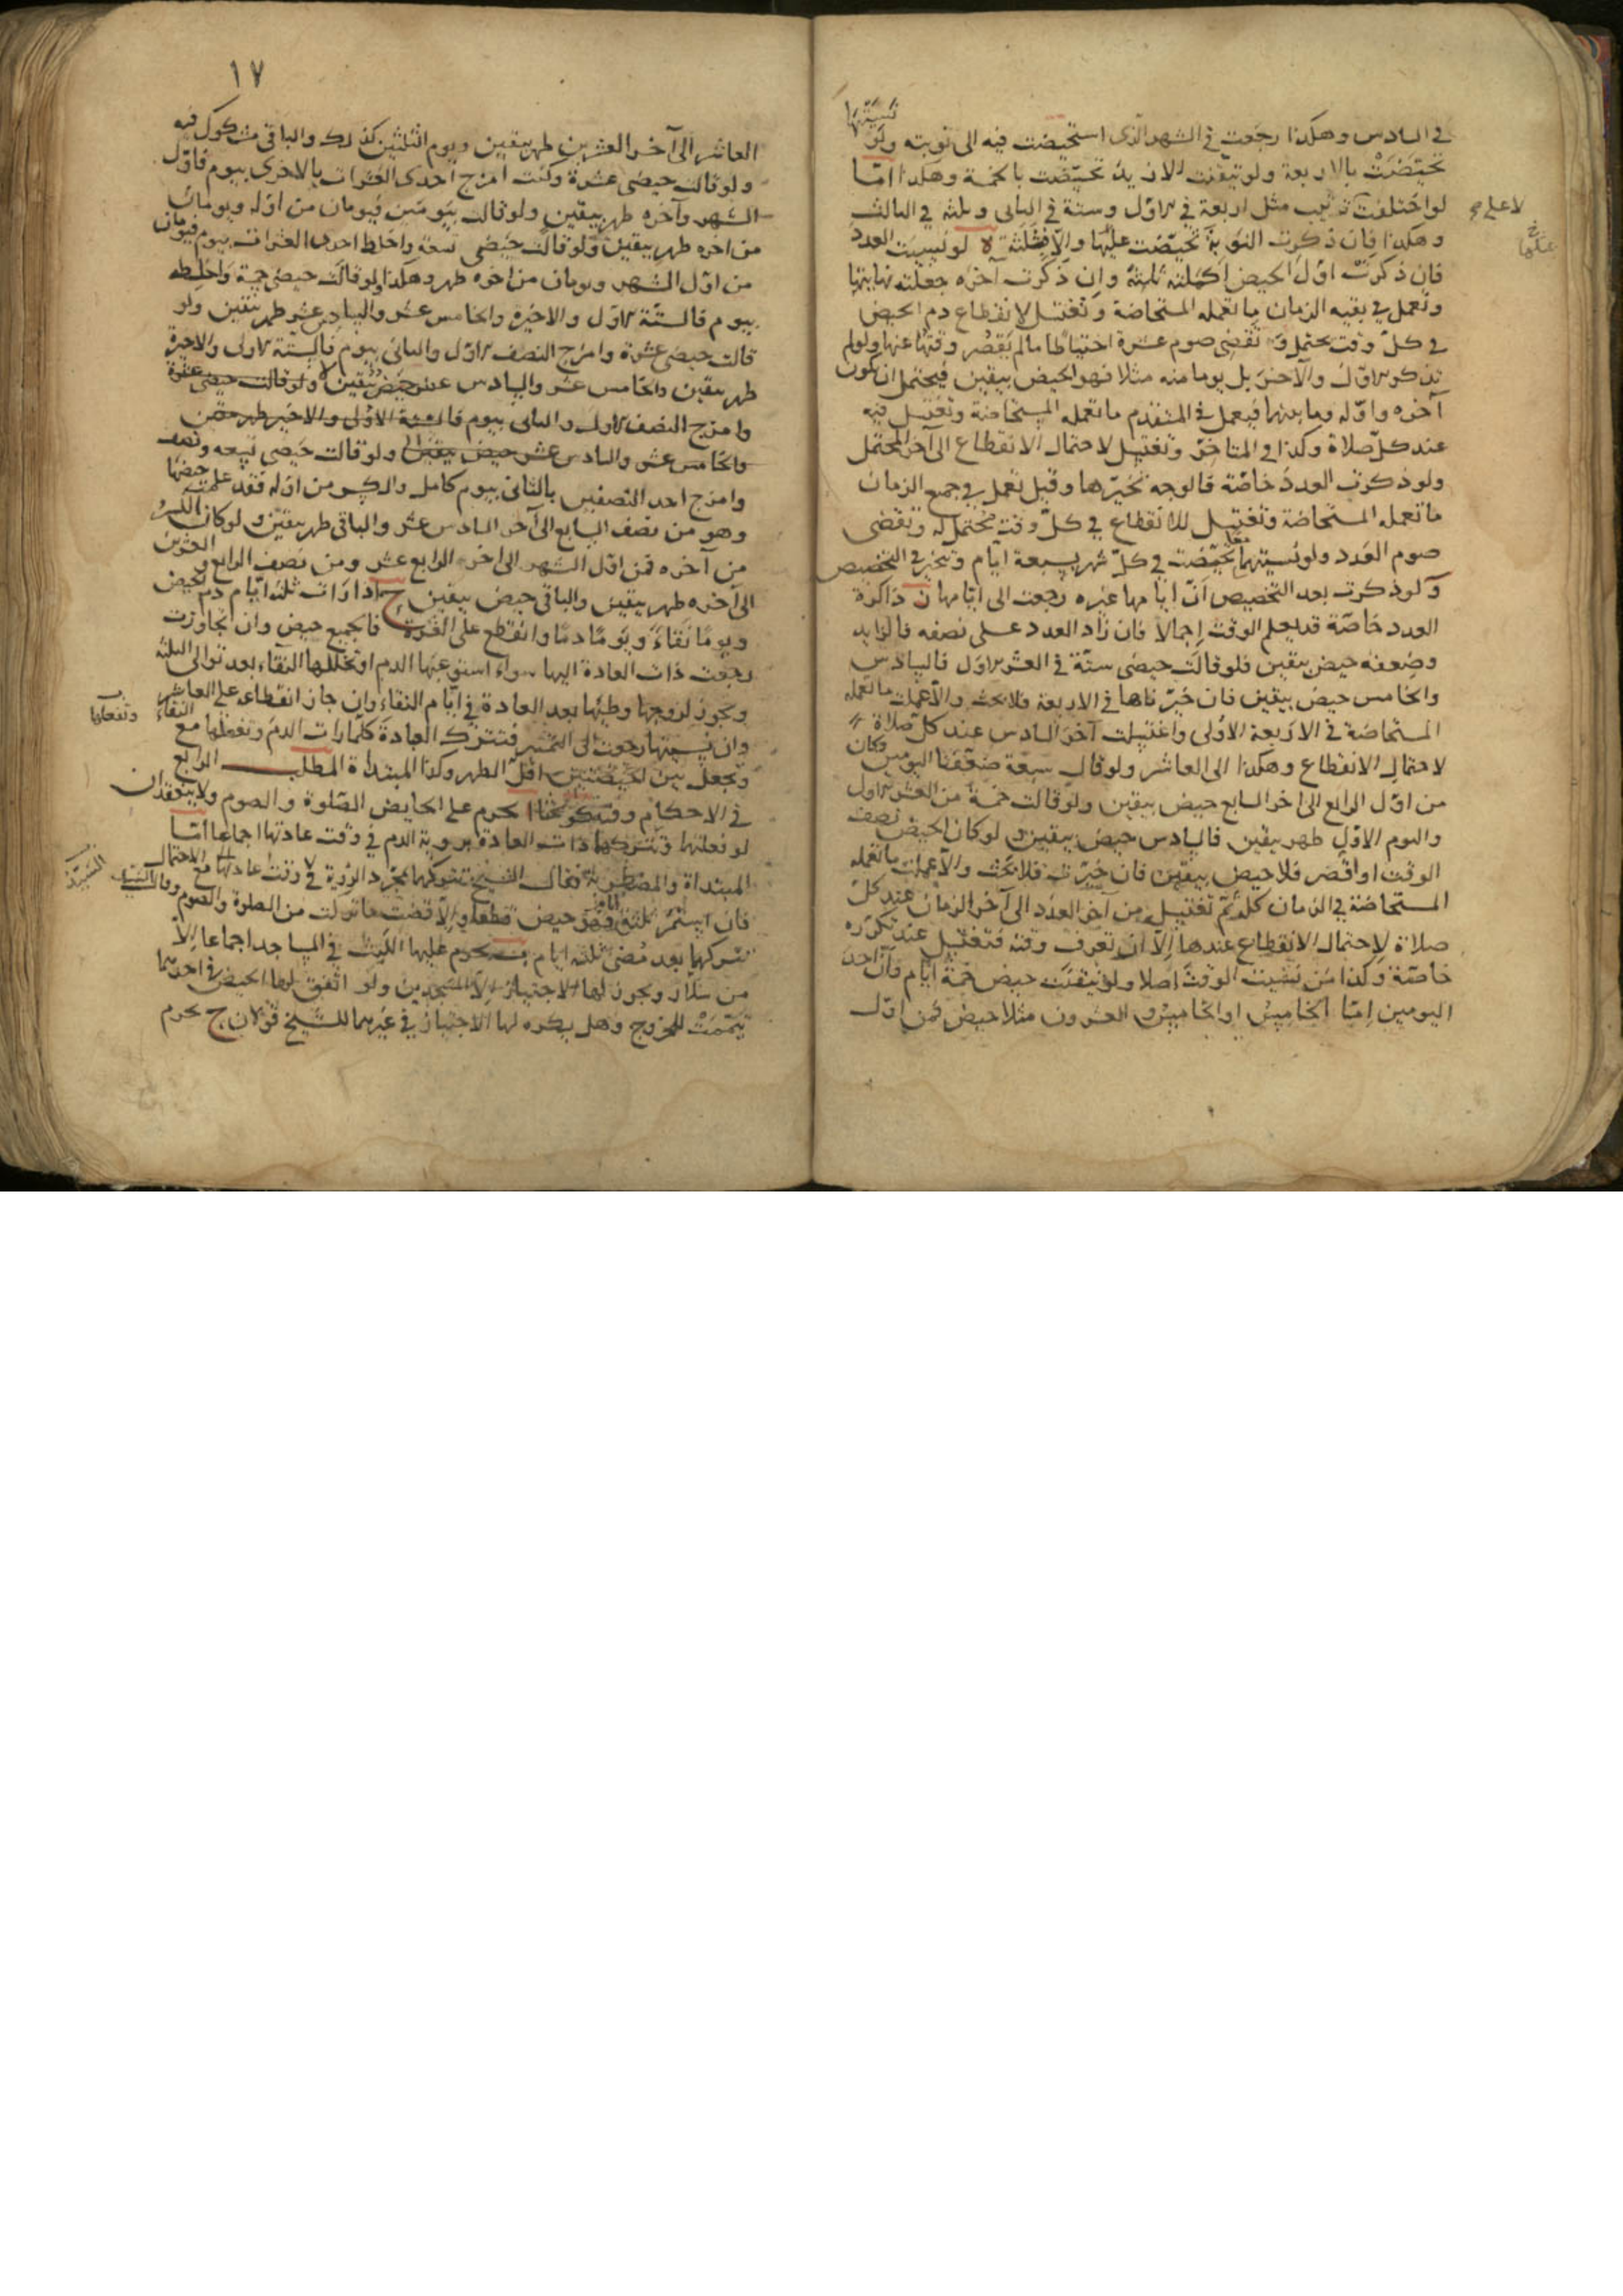 في السادس وهكذا رجعت في الشهر الذى استحيضت فيه الى نوبته ولو نسيتها
تحيّضت بالاربعة ولو تيقنت الازيد تحيّضت بالخمسة وهكذا امّا
لو اختلفت مثل اربعة في الاوّل وستة في الثانى وثلثة في الثالث
وهكذا فان ذكرت النوبة تحيّضت عليها والّا فثلثة لا لو نسيت العدد
فان ذكرت اوّل الحيض اكملته ثلثة وان ذكرت آخره جعلته نهايتها
وتعمل في بقية الزمان ما تعمله المستحاضة وتغتسل لانقطاع دم الحيض
في كلّ وقت يحتمل وتقضى صوم عشرة احتياطا ما لم يقصر وقتها عنها ولو لم
تذكر الاوّل والآخر بل يوما منه مثلا فهو الحيض بيقين فيحتمل ان يكون
آخره واوّله وما بينهما فيعمل في المتقدم ما تعمله المستحاضة وتغتسل فيه
عند كلّ صلاة وكذا في المتاخّر وتغتسل لاحتمال الانقطاع الى آخر المحتمل
ولو ذكرت العدد خاصّة فالوجه تخيّرها وقيل تعمل في جميع الزمان
ما تعمله المستحاضة وتغتسل للانقطاع في كلّ وقت يحتمل له وتقضى
صوم العدد ولو نسيتهما معا تحيّضت في كلّ شهر بسبعة ايام وتتخير في التخصيص
ولو ذكرت بعد التخصيص انّ ايامها غيره رجعت الى ايامها ن ذاكرة
العدد خاصّة قد يعلم الوقت اجمالا فان زاد العدد على نصفه فالزايد
وضعفه حيض بيقين فلو قالت حيضى ستّة في العشر الاوّل فالسادس
والخامس حيض بيقين فان خيّرناها في الاربعة فلا بحث والّا عملت ما تعمله
المستحاضة في الاربعة الاولى واغتسلت آخر السادس عند كل صلاة
لاحتمال الانقطاع وهكذا الى العاشر ولو قالت سبعة ضعّفنا اليومين فكان
من اوّل الرابع الى آخر السابع حيض بيقين ولو قالت خمسة من العشر الاول
واليوم الاوّل طهر بيقين فالسادس حيض بيقين ولو كان الحيض نصف
الوقت او اقصر فلا حيض بيقين فان خيّرت فلا بحث والّا عملت ما تعمله
المستحاضة في الزمان كله ثم تغتسل من آخر العدد الى آخر الزمان عند كلّ
صلاة لاحتمال الانقطاع عندها الّا ان تعرف وقته فتغتسل عند تكرّره
خاصّة وكذا من نسيت الوقت اصلا ولو تيقنت حيض خمسة ايام وانّ احد
اليومين امّا الخامس او الخامس والعشرون مثلا حيض فمن اوّل
لا على
عليها
١٧
العاشر الى آخر العشرين طهر بيقين ويوم الثلثين كذلك والباقي مشكوك فيه
ولو قالت حيضى عشرة وكنت امزج احدى العشرات بالاخرى بيوم فاوّل
الشهر وآخره طهر بيقين ولو قالت بيومين فيومان من اوّله ويومان
من آخره طهر بيقين ولو قالت حيضى تسعة واخلط احدى العشرات بيوم فيومان
من اوّل الشهر ويومان من آخره طهر وهكذا ولو قالت حيضى خمسة واخلطه
بيوم فالستّة الاوّل والاخيرة والخامس عشر والسادس عشر طهر بيقين ولو
قالت حيضى عشرة وامزج النصف الاوّل والثانى بيوم فالستة الاولى والاخيرة
طهر بيقين والخامس عشر والسادس عشر حيض بيقين ولو قالت حيضى عشرة
وامزج النصف الاول والثانى بيوم فالستة الاوّل والاخير طهر بيقين
والخامس عشر والسادس عشر حيض بيقين ولو قالت حيضى تسعة ونصف
وامزج احد النصفين بالثانى بيوم كامل والكسر من اوّله فقد علمت حيضها
وهو من نصف السابع الى آخر السادس عشر والباقى طهر بيقين ولو كان الكسر
من آخره فمن اوّل الشهر الى آخر الرابع عشر ومن نصف الرابع والعشرين
الى آخره طهر بيقين والباقى حيض بيقين ح اذا رات ثلثة ايّام دم الحيض
ويوما نقاءً ويوما دما وانقطع على العشرة فالجميع حيض وان تجاوزت
رجعت ذات العادة اليها سواء استوعبها الدم او تخللها النقاء بعد توالى الثلثة
ويجوز لزوجها وطئها بعد العادة في ايّام النقاء وان جاز انقطاعه على العاشر
وان نسيتها رجعت الى التميّز فتترك العبادة كلّما رات الدم وتفعلها مع النقاء
وتجعل بين الحيضتين اقلّ الطهر وكذا المبتداة المطلب الرابع
في الاحكام وفيه ا يحرم على الحايض الصّلوة والصوم ولا ينعقدان
لو فعلتهما وتتركهما ذات العادة برؤية الدم في وقت عادتها اجماعا امّا
المبتداة والمضطربة فقال الشيخ تتركهما بمجرد الرؤية في وقت عادتها مع الاحتمال
فان استمر ثلثة ايام فهو حيض قطعا والّا قضت ما تركت من الصلوة والصوم وقال السيّد
تتركهما بعد مضى ثلثة ايام ب يحرم عليها اللبث في المساجد اجماعا الّا
من سلّار ويجوز لها الاجتياز الّا المسجدين ولو اتّفق لها الحيض في احدهما
تيمّمت للخروج وهل يكره لها الاجتياز في غيرهما للشيخ قولان ج يحرم
وتفعلها
السيّد